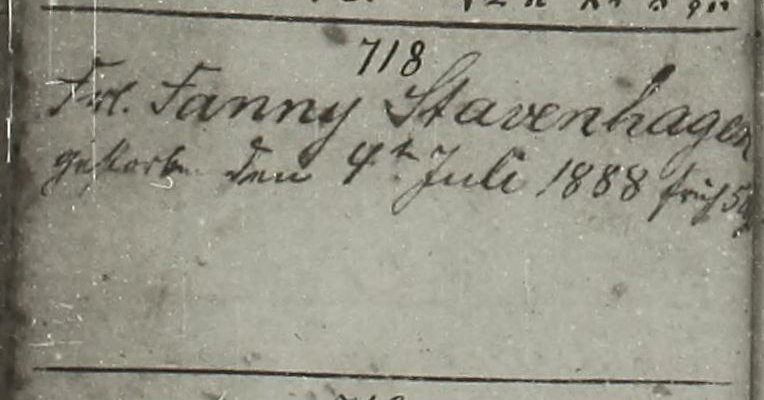 718
Frl. Fanny Stavenhagen
gestorben den 4t Juli 1888 früh 5